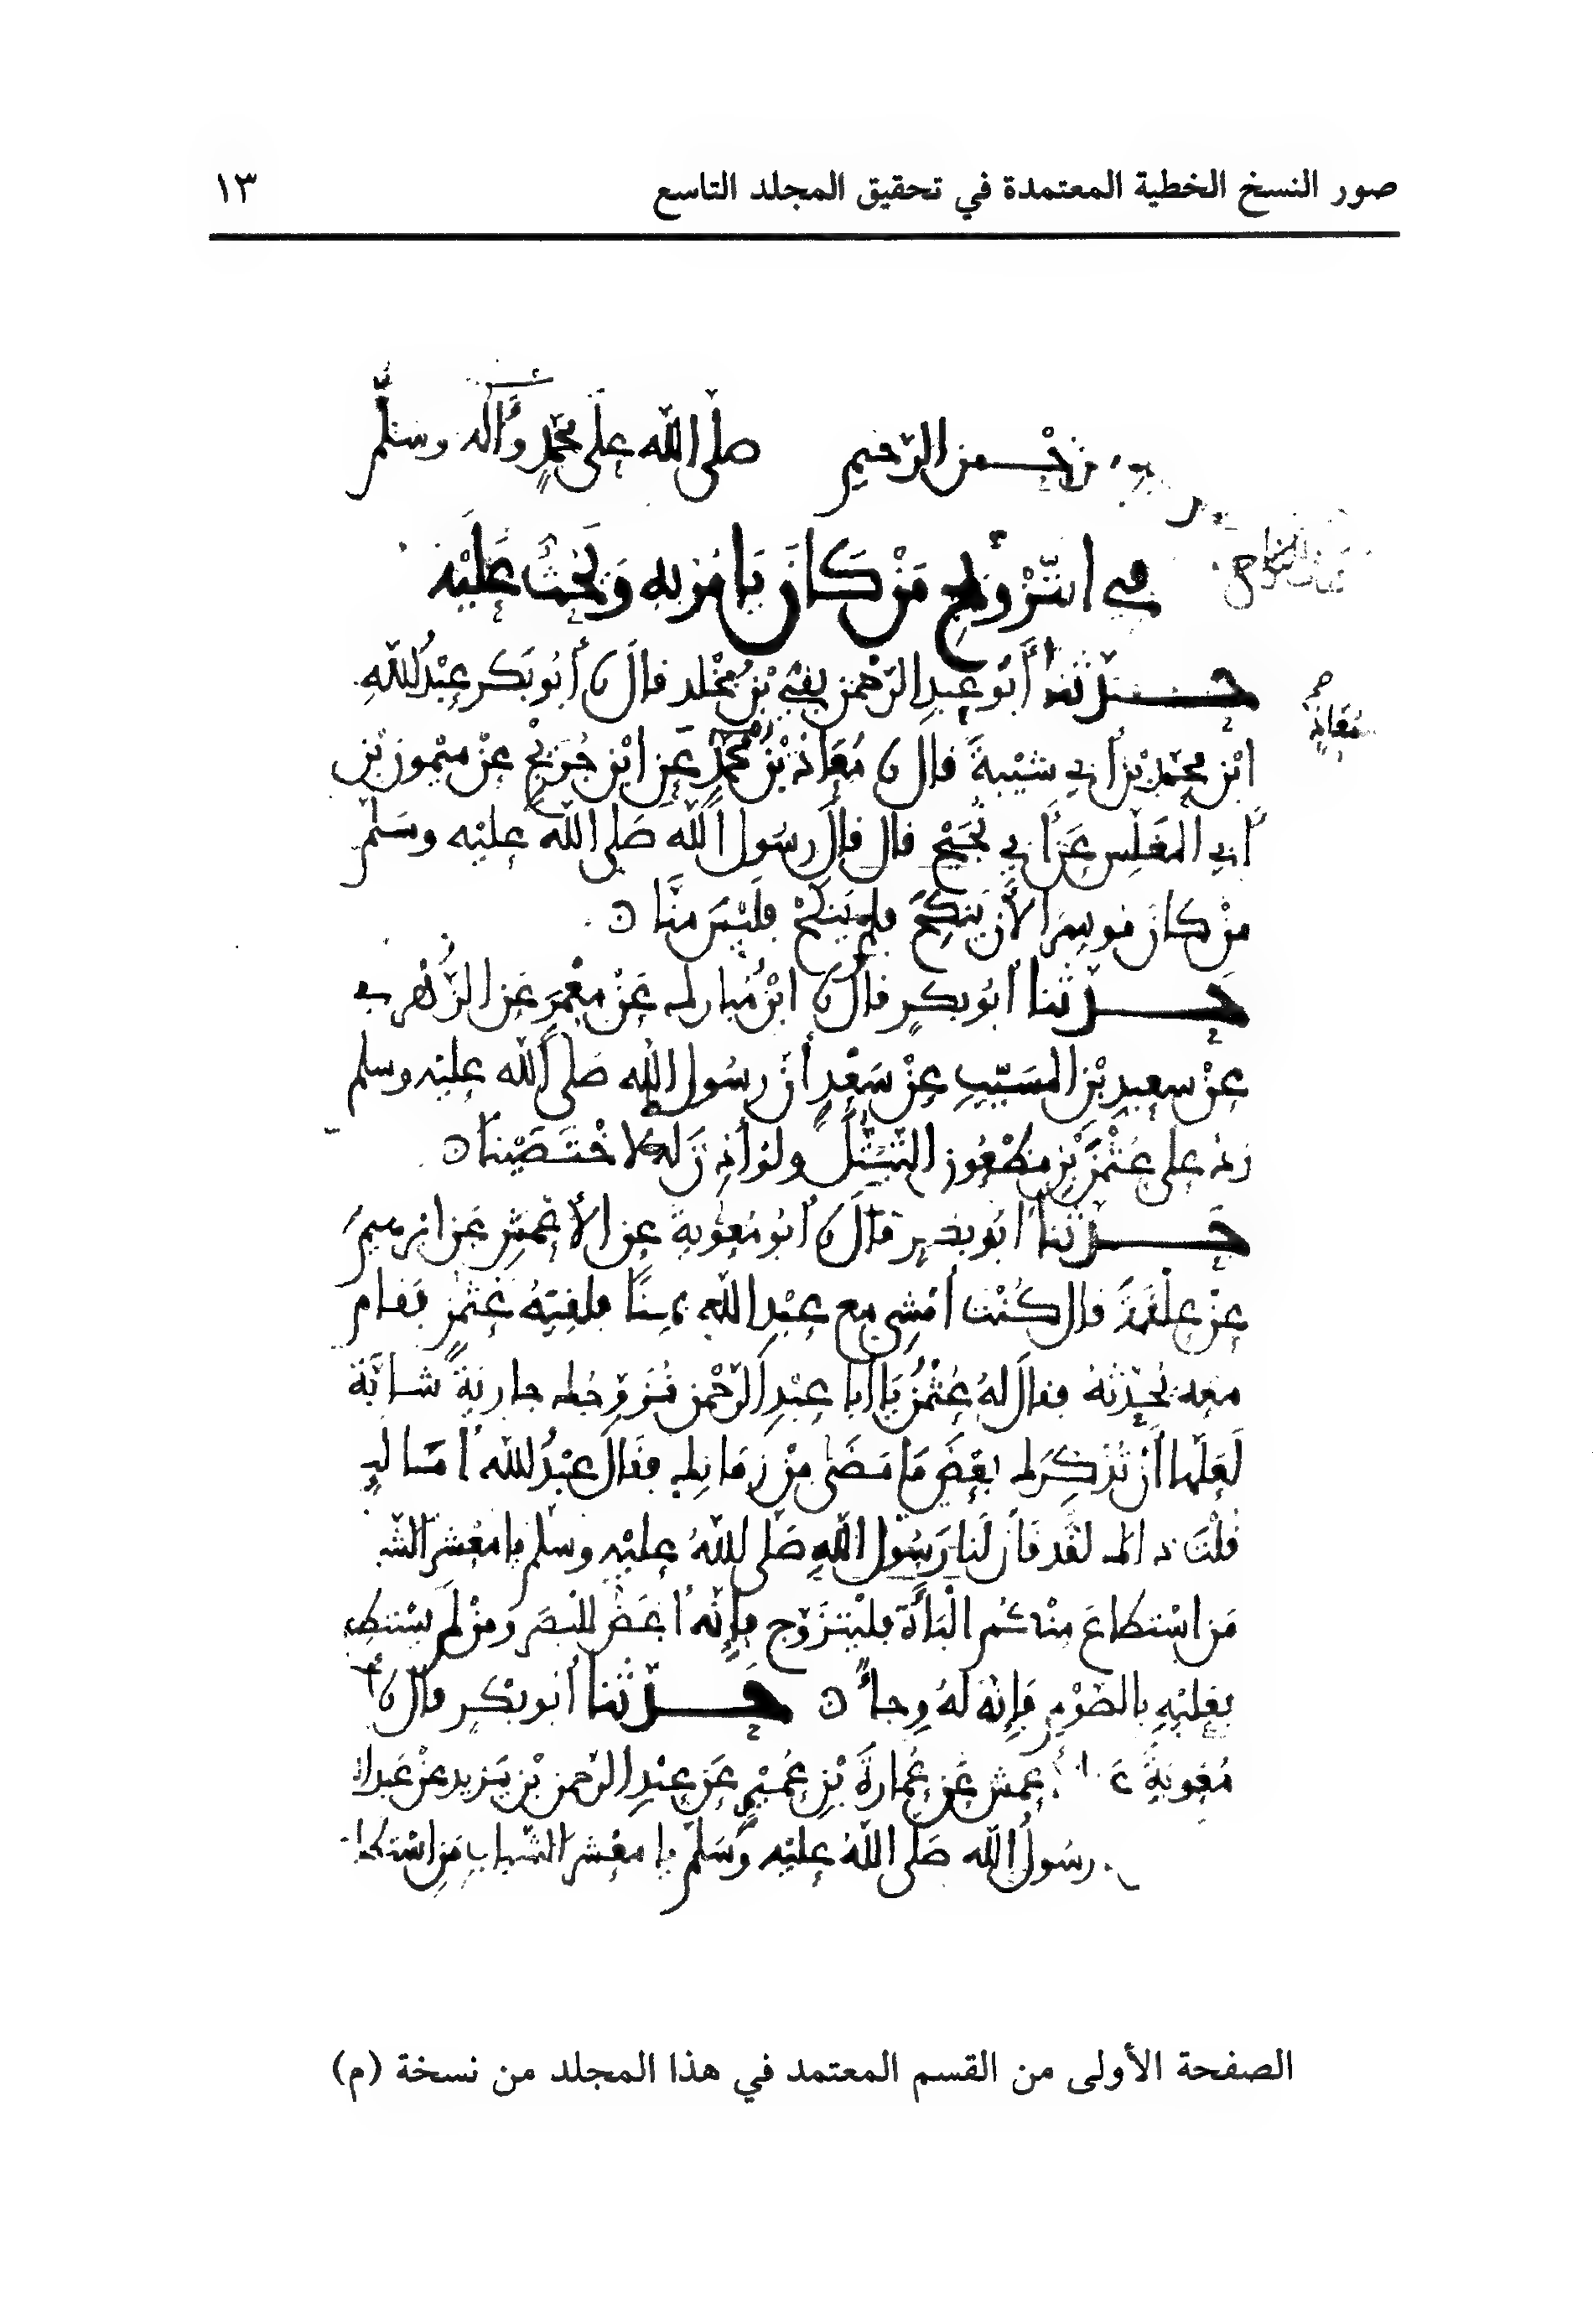 صور النسخ الخطية المعتمدة في تحقيق المجلد التاسع
١٣
الرحيم صلى الله على محمد وآله وسلم
في التزويج من كان يامر به ويحث عليه
حدثنا أبو عبد الرحمن بقي بن مخلد قال نا أبو بكر عبد الله
معاذ
ابن محمد بن أبي شيبة قال نا معاذ بن محمد عن ابن جريج عن ميمون بن
أبي المغلس عن أبي نجيح قال قال رسول الله صلى الله عليه وسلم
من كان موسرا لأن ينكح فلم ينكح فليس منا
حدثنا أبو بكر قال نا ابن مبارك عن معمر عن الزهري
عن سعيد بن المسيب عن سعد أن رسول الله صلى الله عليه وسلم
رد على عثمن بن مظعون التبتل ولو أذن له لاختصينا
حدثنا أبو بكر قال نا أبو معوية عن الأعمش عن ابرهيم
عن علقمة قال كنت أمشي مع عبد الله بمنا فلقيه عثمن فقام
معه يحدثه فقال له عثمن يا أبا عبد الرحمن نزوجك جارية شابة
لعلها أن تذكرك بعض ما مضى من زمانك فقال عبد الله أما لين
قلت ذالك لقد قال لنا رسول الله صلى الله عليه وسلم يا معشر الشب
من استطاع منكم الباءة فليتزوج فإنه أغض للبصر ومن لم يستطع
فعليه بالصوم فإنه له وجاء حدثنا أبو بكر قال نا أبو
معوية عن الأعمش عن عمارة بن عمير عن عبد الرحمن بن يزيد عن عبد الله
رسول الله صلى الله عليه وسلم يا معشر الشباب من استطا
الصفحة الأولى من القسم المعتمد في هذا المجلد من نسخة (م)